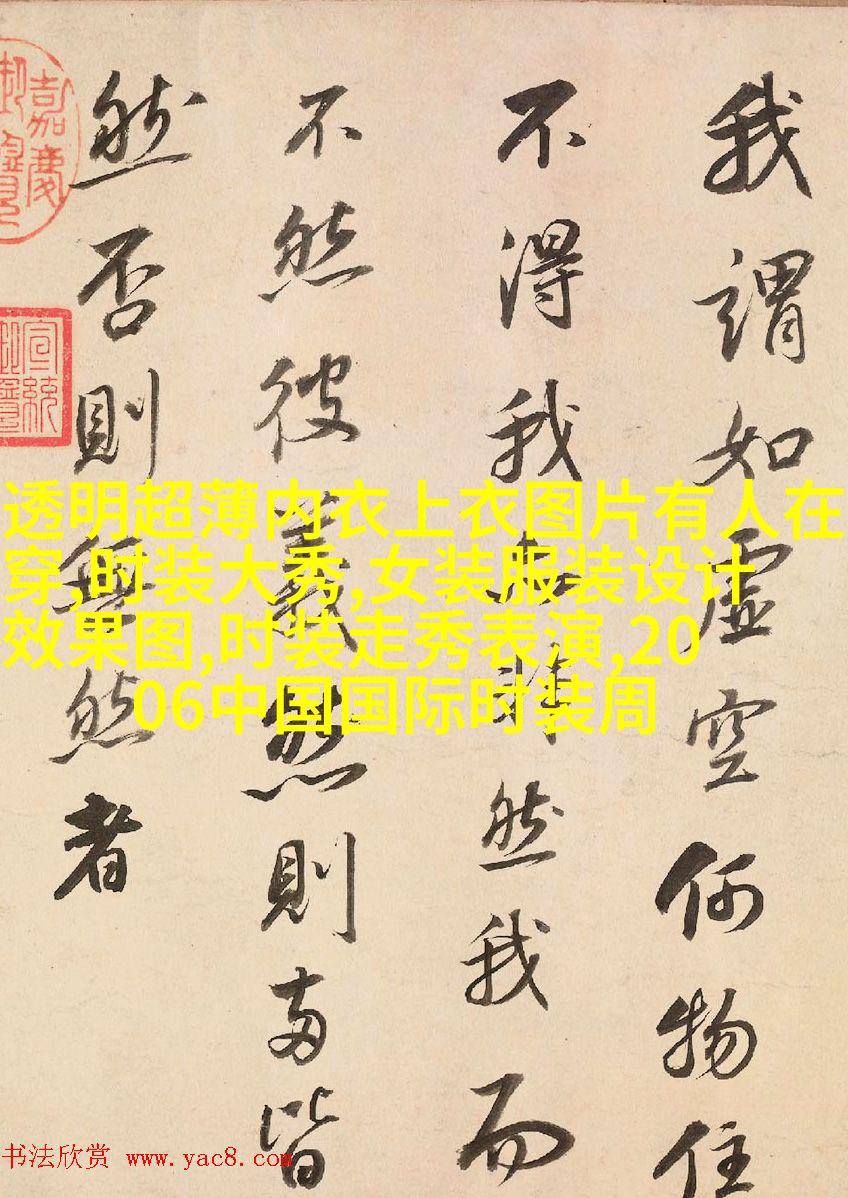 我謂如虛空何物住
不得我非然我而
不然彼義然則兩皆
然否則無然者
嘉慶
宣統
透明超薄内衣上衣图片有人在
穿,时装大秀,女装服装设计
效果图,时装走秀表演,20
06中国国际时装周
书法欣赏 www.yac8.com